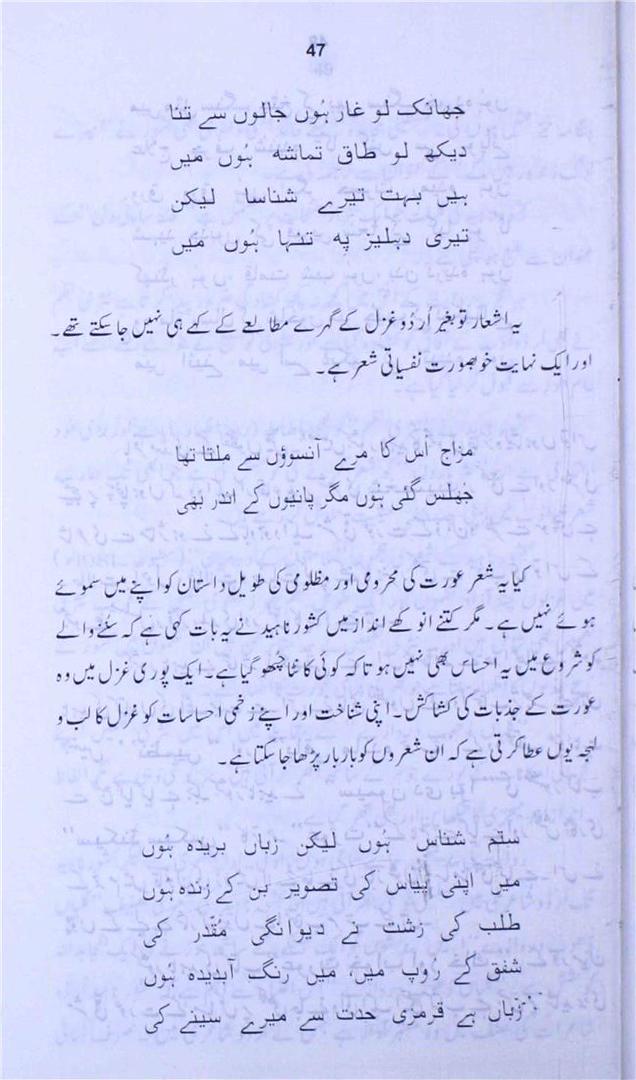 47
جھانک لو غار ہُوں جالوں سے تنا
دیکھ لو طاق تماشہ ہُوں میں
ہیں بہت تیرے شناسا لیکن
تیری دہلیز پہ تنہا ہُوں میں
یہ اشعار تو بغیر اُردُو غزل کے گہرے مطالعے کے کہے ہی نہیں جا سکتے تھے۔
اور ایک نہایت خوبصورت نفسیاتی شعر ہے۔
مزاج اُس کا مرے آنسوؤں سے ملتا تھا
جُھلس گئی ہوں مگر پانیوں کے اندر بھی
کیا یہ شعر عورت کی محرومی اور مظلومی کی طویل داستان کو اپنے میں سموئے
ہوئے نہیں ہے۔ مگر کتنے انوکھے انداز میں کشور ناہید نے یہ بات کہی ہے کہ سُننے والے
کو شروع میں یہ احساس بھی نہیں ہوتا کہ کوئی کانٹا چبھو گیا ہے۔ ایک پوری غزل میں وہ
عورت کے جذبات کی کشاکش۔ اپنی شناخت اور اپنے زخمی احساسات کو غزل کا لب و
لہجہ یوں عطا کرتی ہے کہ ان شعروں کو بار بار پڑھا جا سکتا ہے۔
ستم شناس ہُوں لیکن زباں بریدہ ہُوں
میں اپنی پیاس کی تصویر بن کے زندہ ہُوں
طلب کی زشت نے دیوانگی مُقدر کی
شفق کے رُوپ میں، میں رنگ آبدیدہ ہوں
زباں ہے قرمزی حدت سے میرے سینے کی